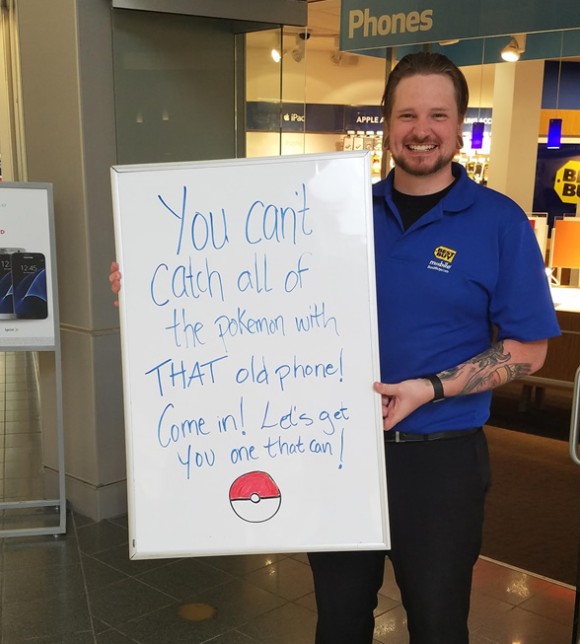 Phones
iPad
APPLE
You can't
catch all of
the pokemon with
THAT old phone!
Come in! Let's get
you one that can!
BEST
BUY
mobile
12:45